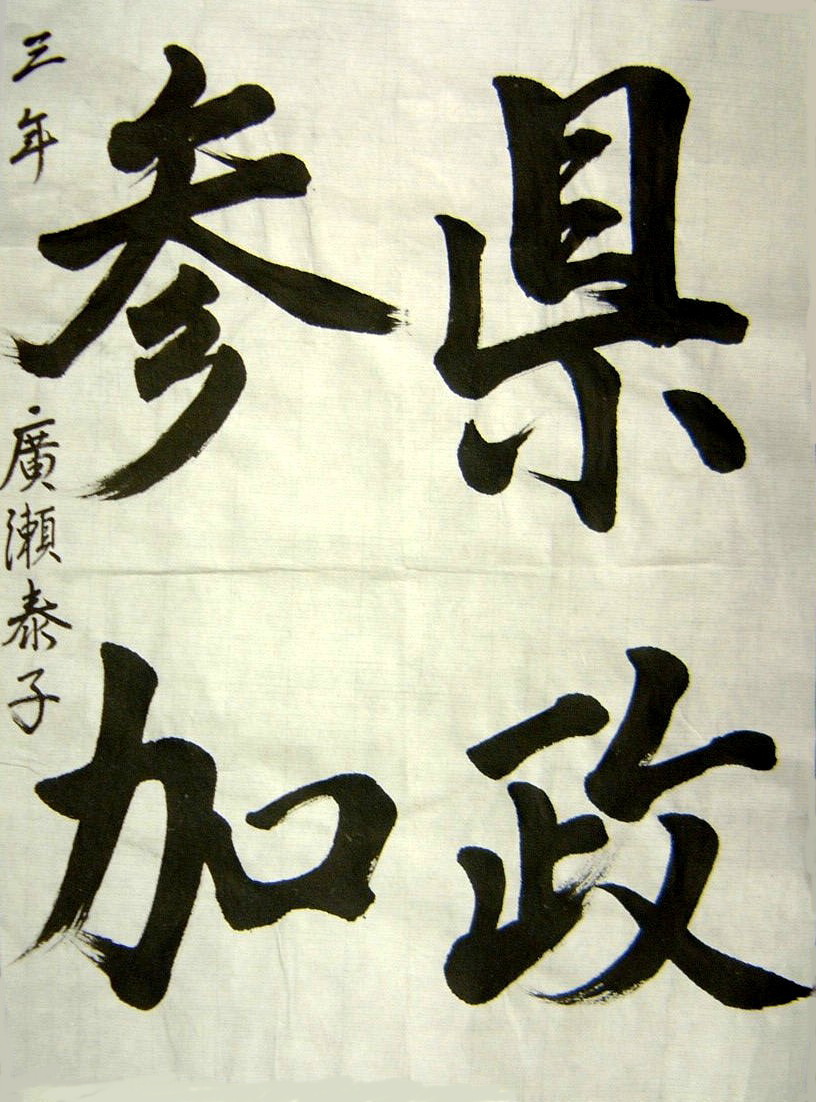 県政
参加
三年 廣瀬泰子